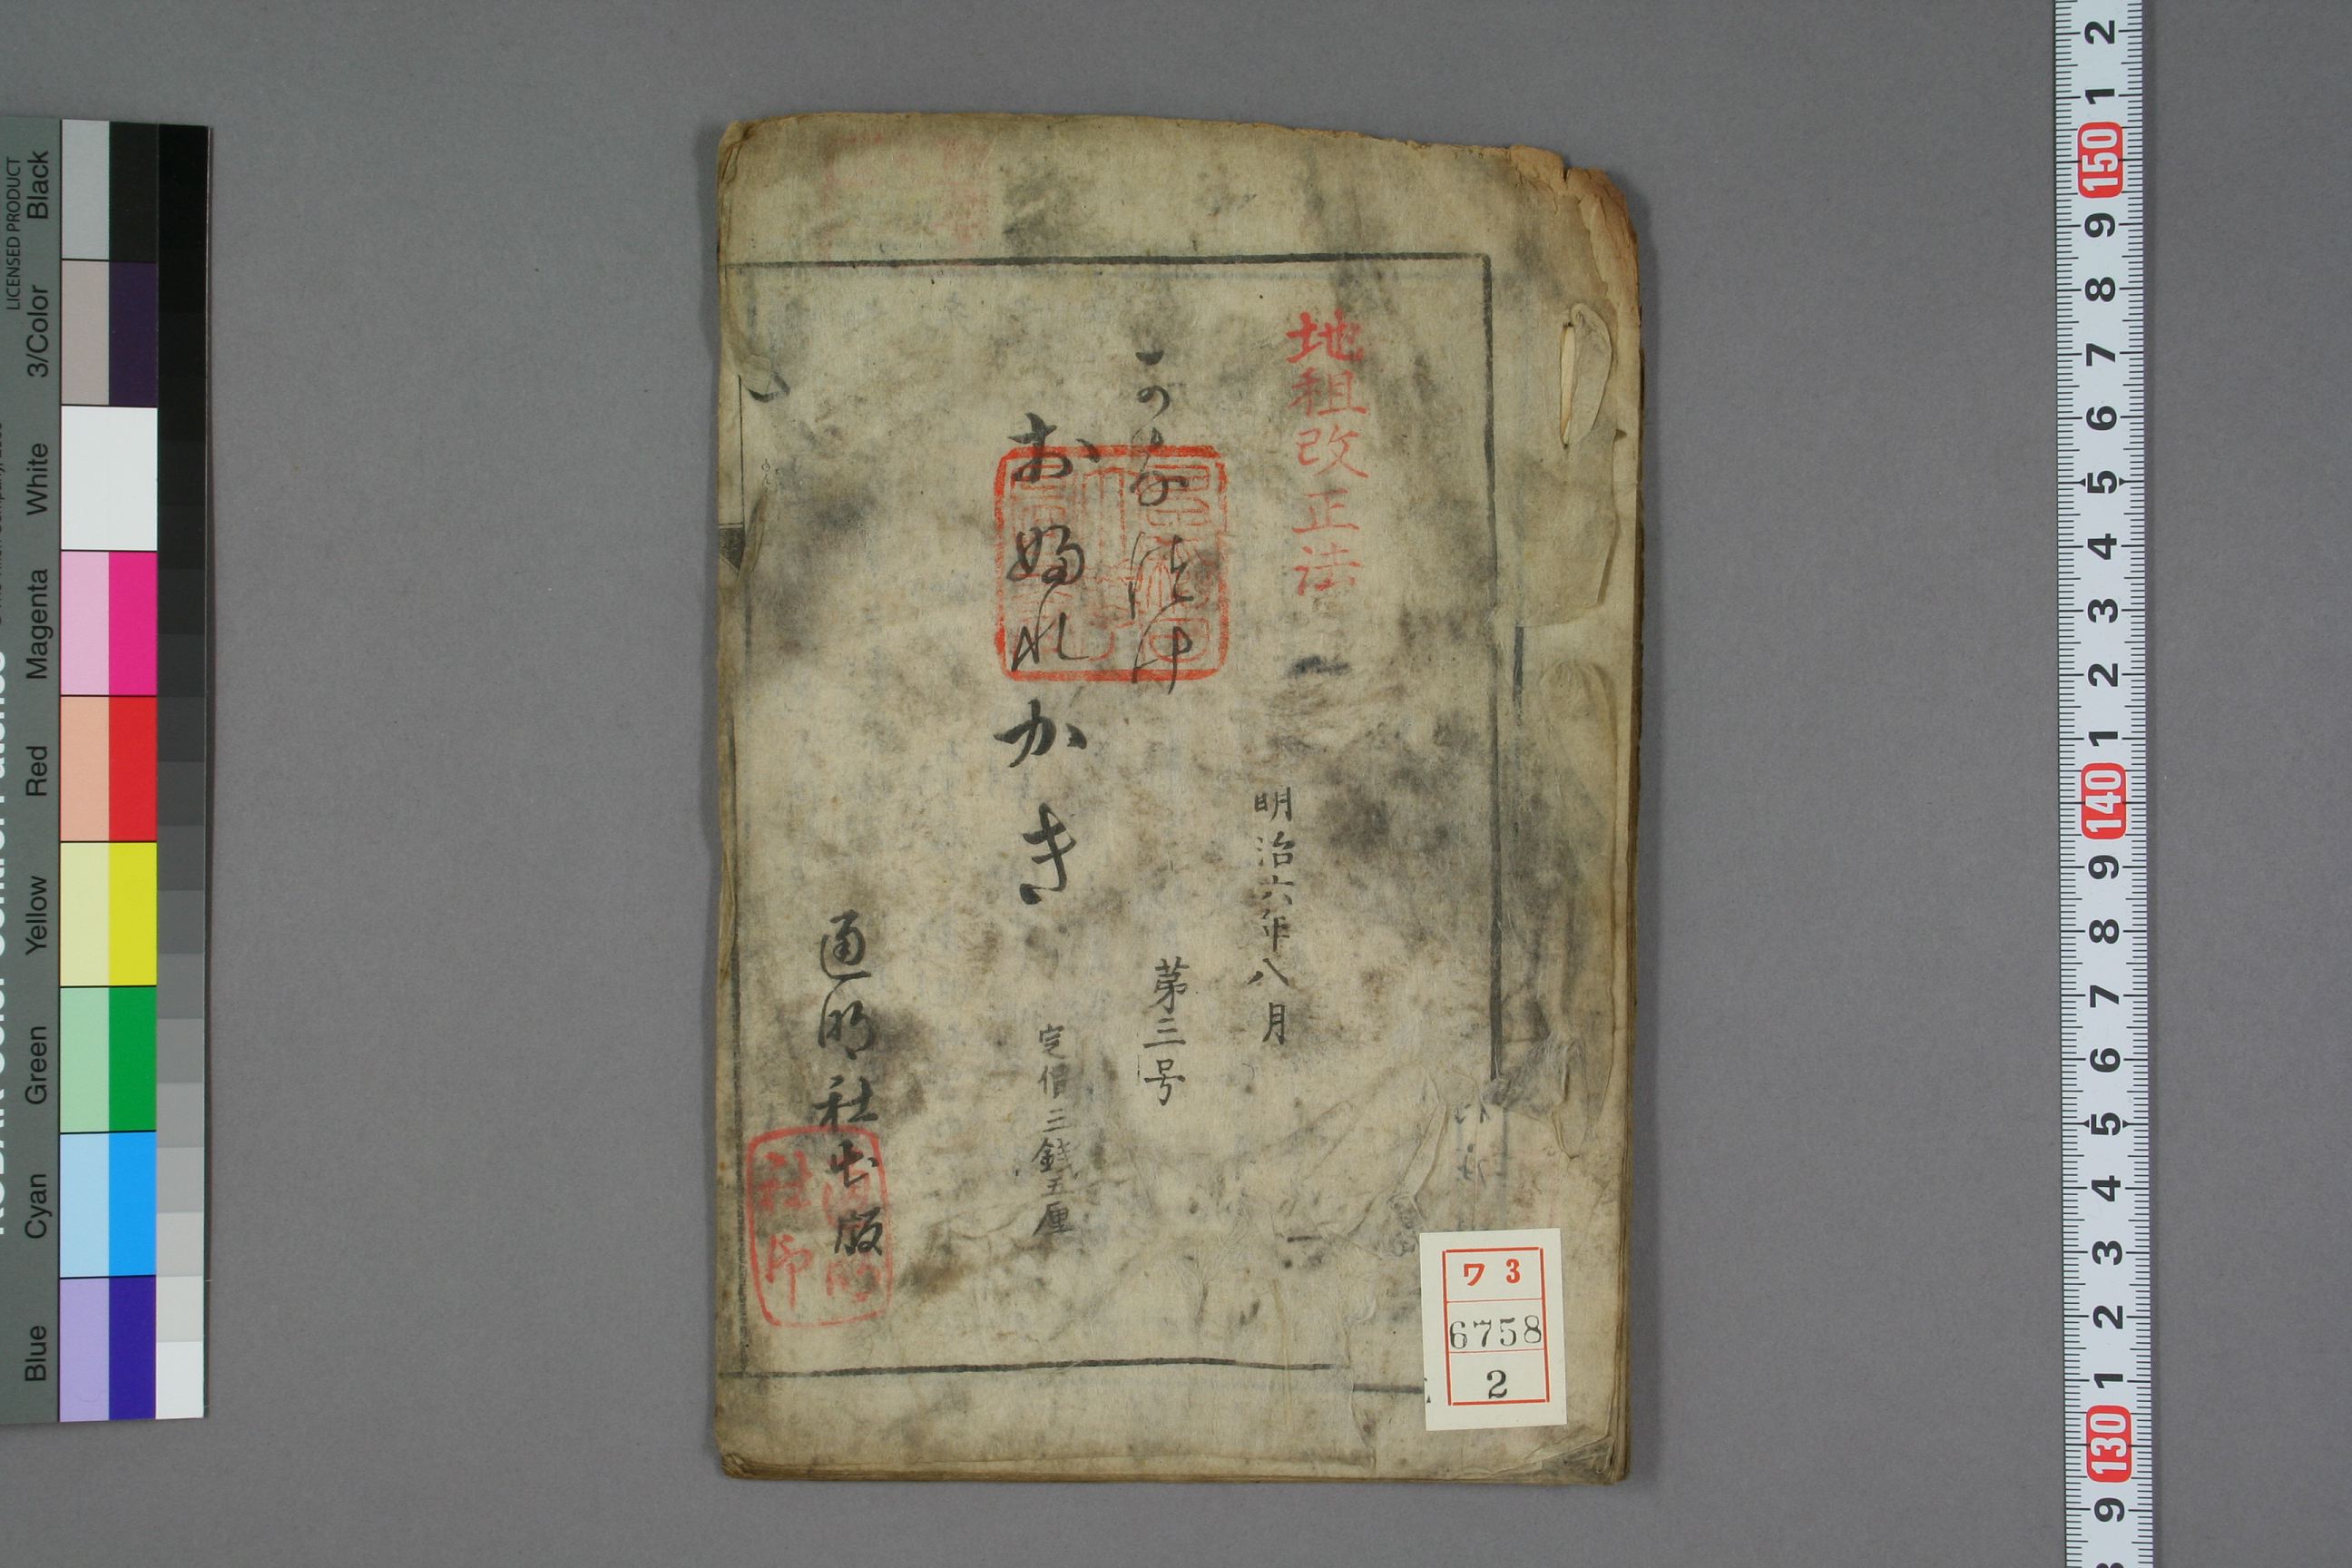 地租改正法
明治六年八月
かなつけ
第三号
おふれかき
定価三銭五厘
通明社出版
社印
ワ3
6758
2
LICENSED PRODUCT
Black
3/Color
White
Magenta
Red
Yellow
Green
Cyan
Blue
2
1
150
9
8
7
6
5
4
3
2
1
140
9
8
7
6
5
4
3
2
1
130
9